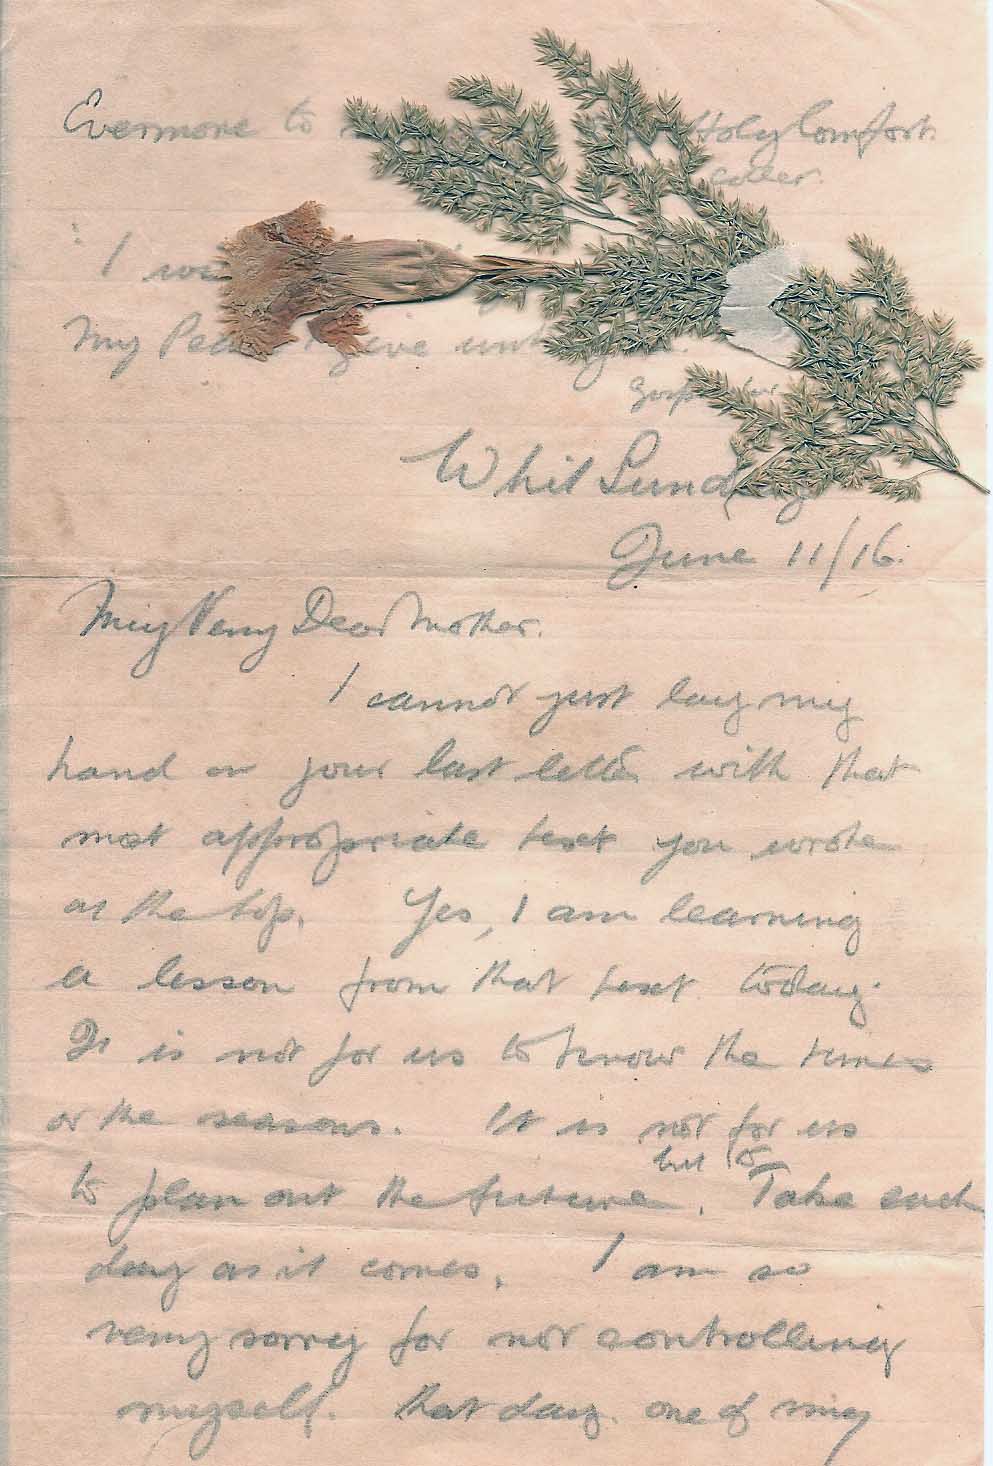 Evermore to Holy Comfort.
Collect.
"I
My Peace I give unto
Gosp for
Whit Sunday
June 11/16.
My Very Dear Mother.
I cannot just lay my
hand on your last letter with that
most appropriate text you wrote
at the top. Yes, I am learning
a lesson from that text today.
It is not for us to know the times
or the seasons. It is not for us
but to
to plan out the future. Take each
day as it comes. I am so
very sorry for not controlling
myself. that day. one of my